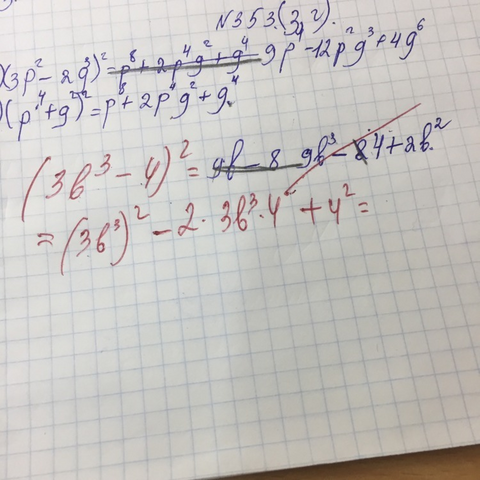 N353.(3,2).
)(3p² - 2g³)² = p⁸ + 2p⁴g² + g⁴ 9p⁴ - 12p²g³ + 4g⁶
)(p⁴ + g²)² = p⁸ + 2p⁴g² + g⁴
(3b³ - 4)² = 9b - 8 9b³ - 84 + 2b²
= (3b³)² - 2 · 3b³ · 4 + 4² =